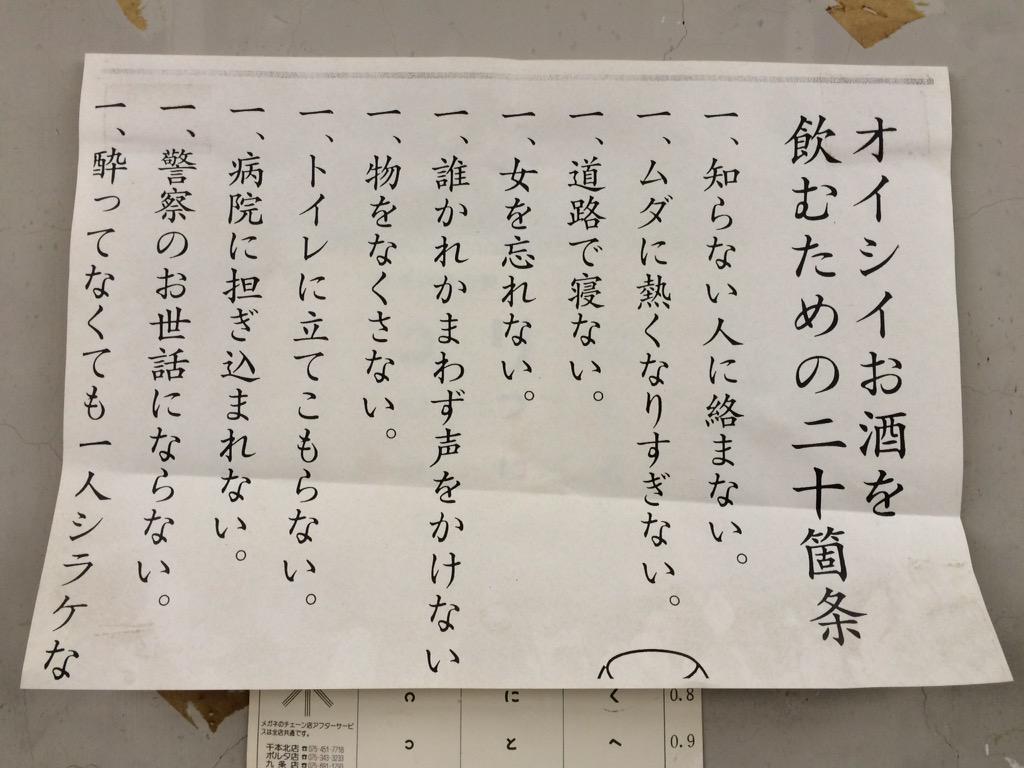 オイシイお酒を
飲むための二十箇条
一、知らない人に絡まない。
一、ムダに熱くなりすぎない。
一、道路で寝ない。
一、女を忘れない。
一、誰かれかまわず声をかけない
一、物をなくさない。
一、トイレに立てこもらない。
一、病院に担ぎ込まれない。
一、警察のお世話にならない。
一、酔ってなくても一人シラケな
メガネのチェーン店アフターサービ
スは全店共通です。
千本北店 ☎075-451-7718
ポルタ店 ☎075-343-3233
九条店
く
に
0.8
へ
と
つ
0.9